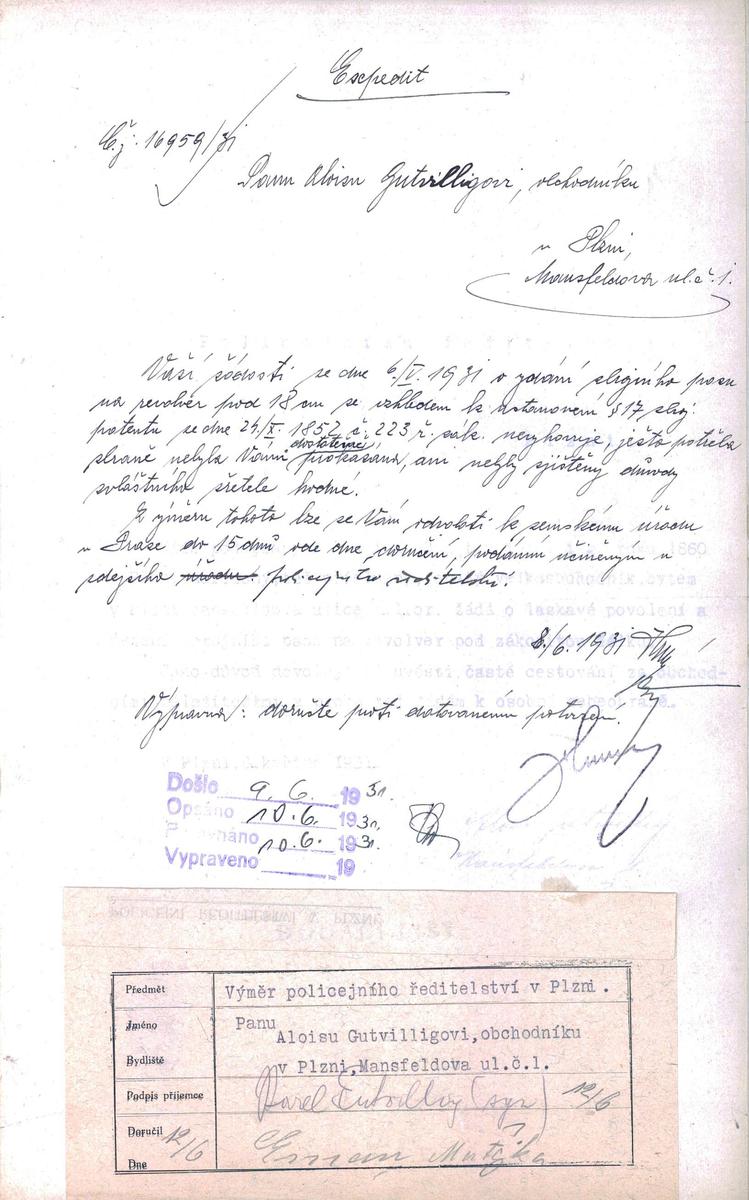 Expedit
Č.j. 16959/31
Panu Aloisu Gutvilligovi, obchodníku
v Plzni,
Mansfeldova ul.č. 1.
Vaší žádosti ze dne 6/V. 1931 o vydání zbrojního pasu
na revolver pod 18 cm se vzhledem k ustanovení §17 zbroj.
patentu ze dne 24/X. 1852 č. 223 ř. zák. nevyhovuje, ješto potřeba
zbraně nebyla Vámi dostatečně prokázána, ani nebyly zjištěny důvody
zvláštního zřetele hodné.
Z výměru tohoto lze se Vám odvolati k zemskému úřadu
v Praze do 15 dnů ode dne doručení, podáním učiněným u
zdejšího úřadu policejního ředitelství.
8./6. 1931
Výpravna: doručte proti datovanému potvrzen.
Došlo 9. 6. 1931.
Opsáno 10. 6. 1931.
10. 6. 1931.
Vypraveno 19
POLICEJNÍ ŘEDITELSTVÍ V PLZNI
Předmět Výměr policejního ředitelství v Plzni.
Jméno Panu
Aloisu Gutvilligovi,obchodníku
Bydliště v Plzni,Mansfeldova ul.č.1.
Podpis příjemce Karel Gutvillig (syn) 12/6
Doručil 12/6
Dne